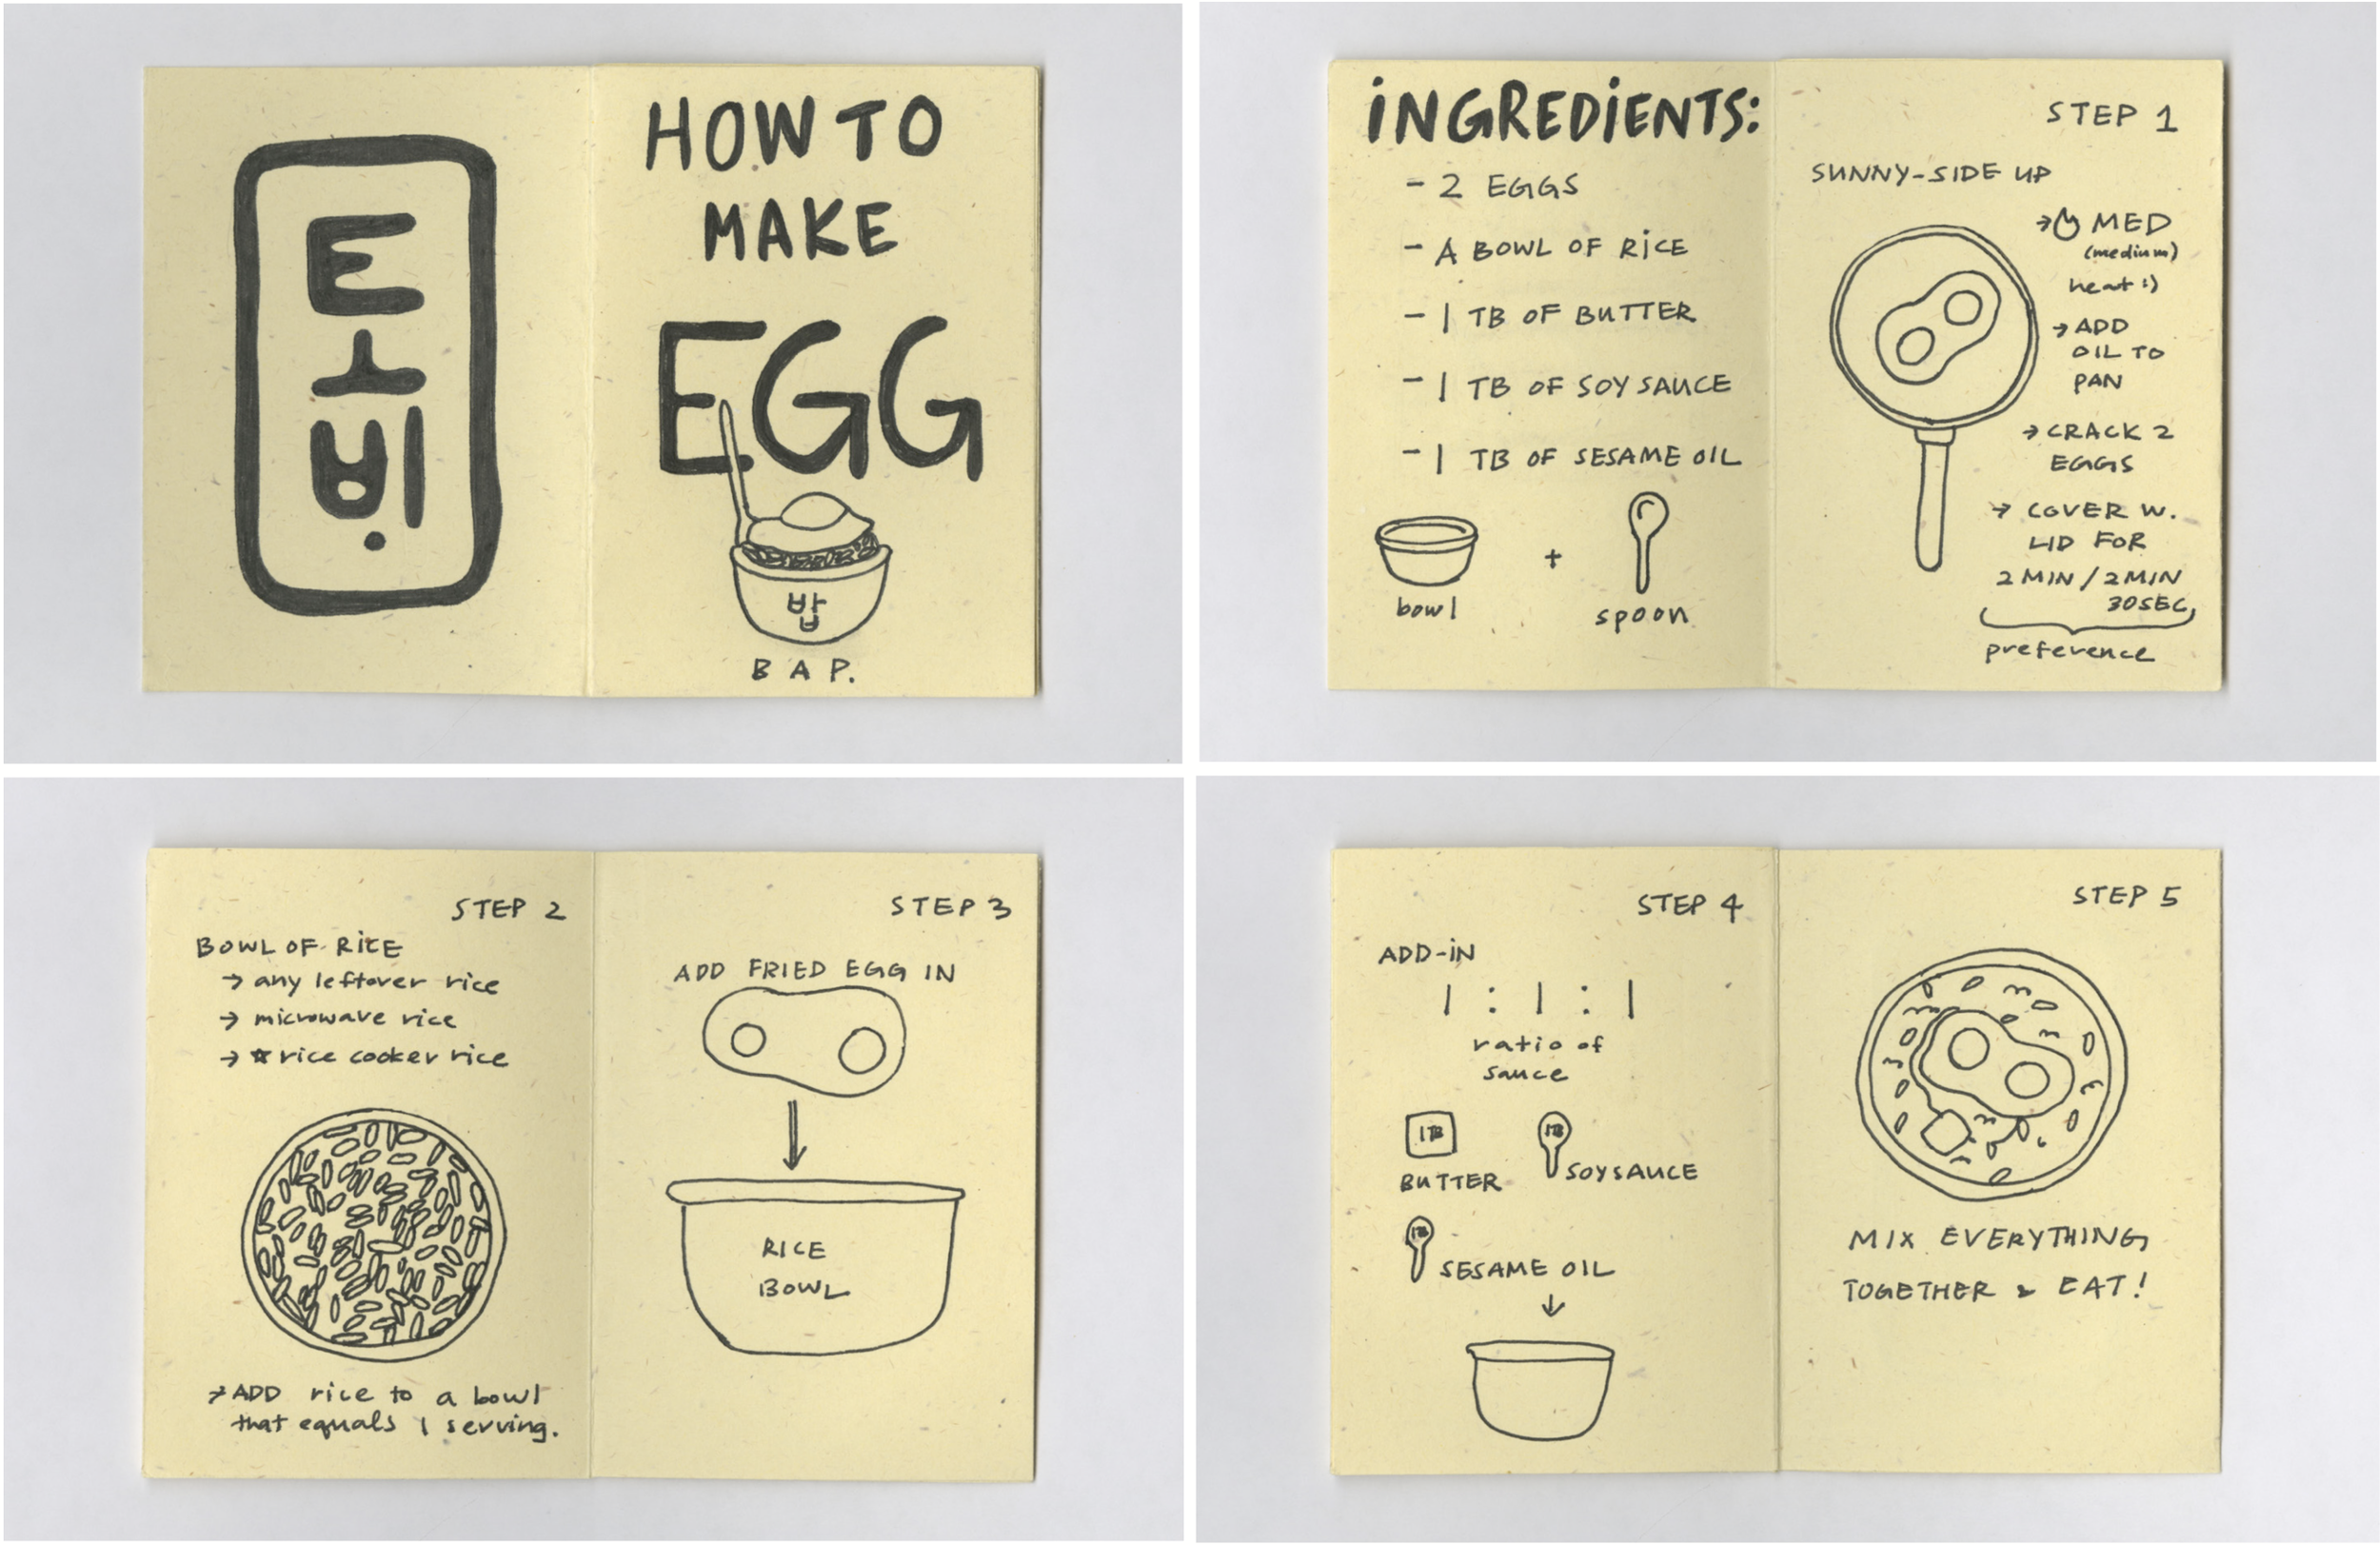 토
비.
HOW TO
MAKE
EGG
밥
BAP.
iNGREDiENTS:
- 2 EGGS
- A BOWL OF RiCE
- 1 TB OF BUTTER
- 1 TB OF SOY SAUCE
- 1 TB OF SESAME OIL
bowl + spoon
STEP 1
SUNNY-SIDE UP
→ MED
(medium)
heat :)
→ ADD
OIL TO
PAN
→ CRACK 2
EGGS
→ COVER W.
LID FOR
2 MIN / 2 MIN
30SEC
preference
STEP 2
BOWL OF RiCE
→ any leftover rice
→ microwave rice
→ ☆ rice cooker rice
→ ADD rice to a bowl
that equals 1 serving.
STEP 3
ADD FRIED EGG IN
RICE
BOWL
STEP 4
ADD-iN
1 : 1 : 1
ratio of
sauce
1TB
BUTTER
1TB
SOYSAUCE
1TB
SESAME OIL
STEP 5
MIX EVERYTHING
TOGETHER & EAT!